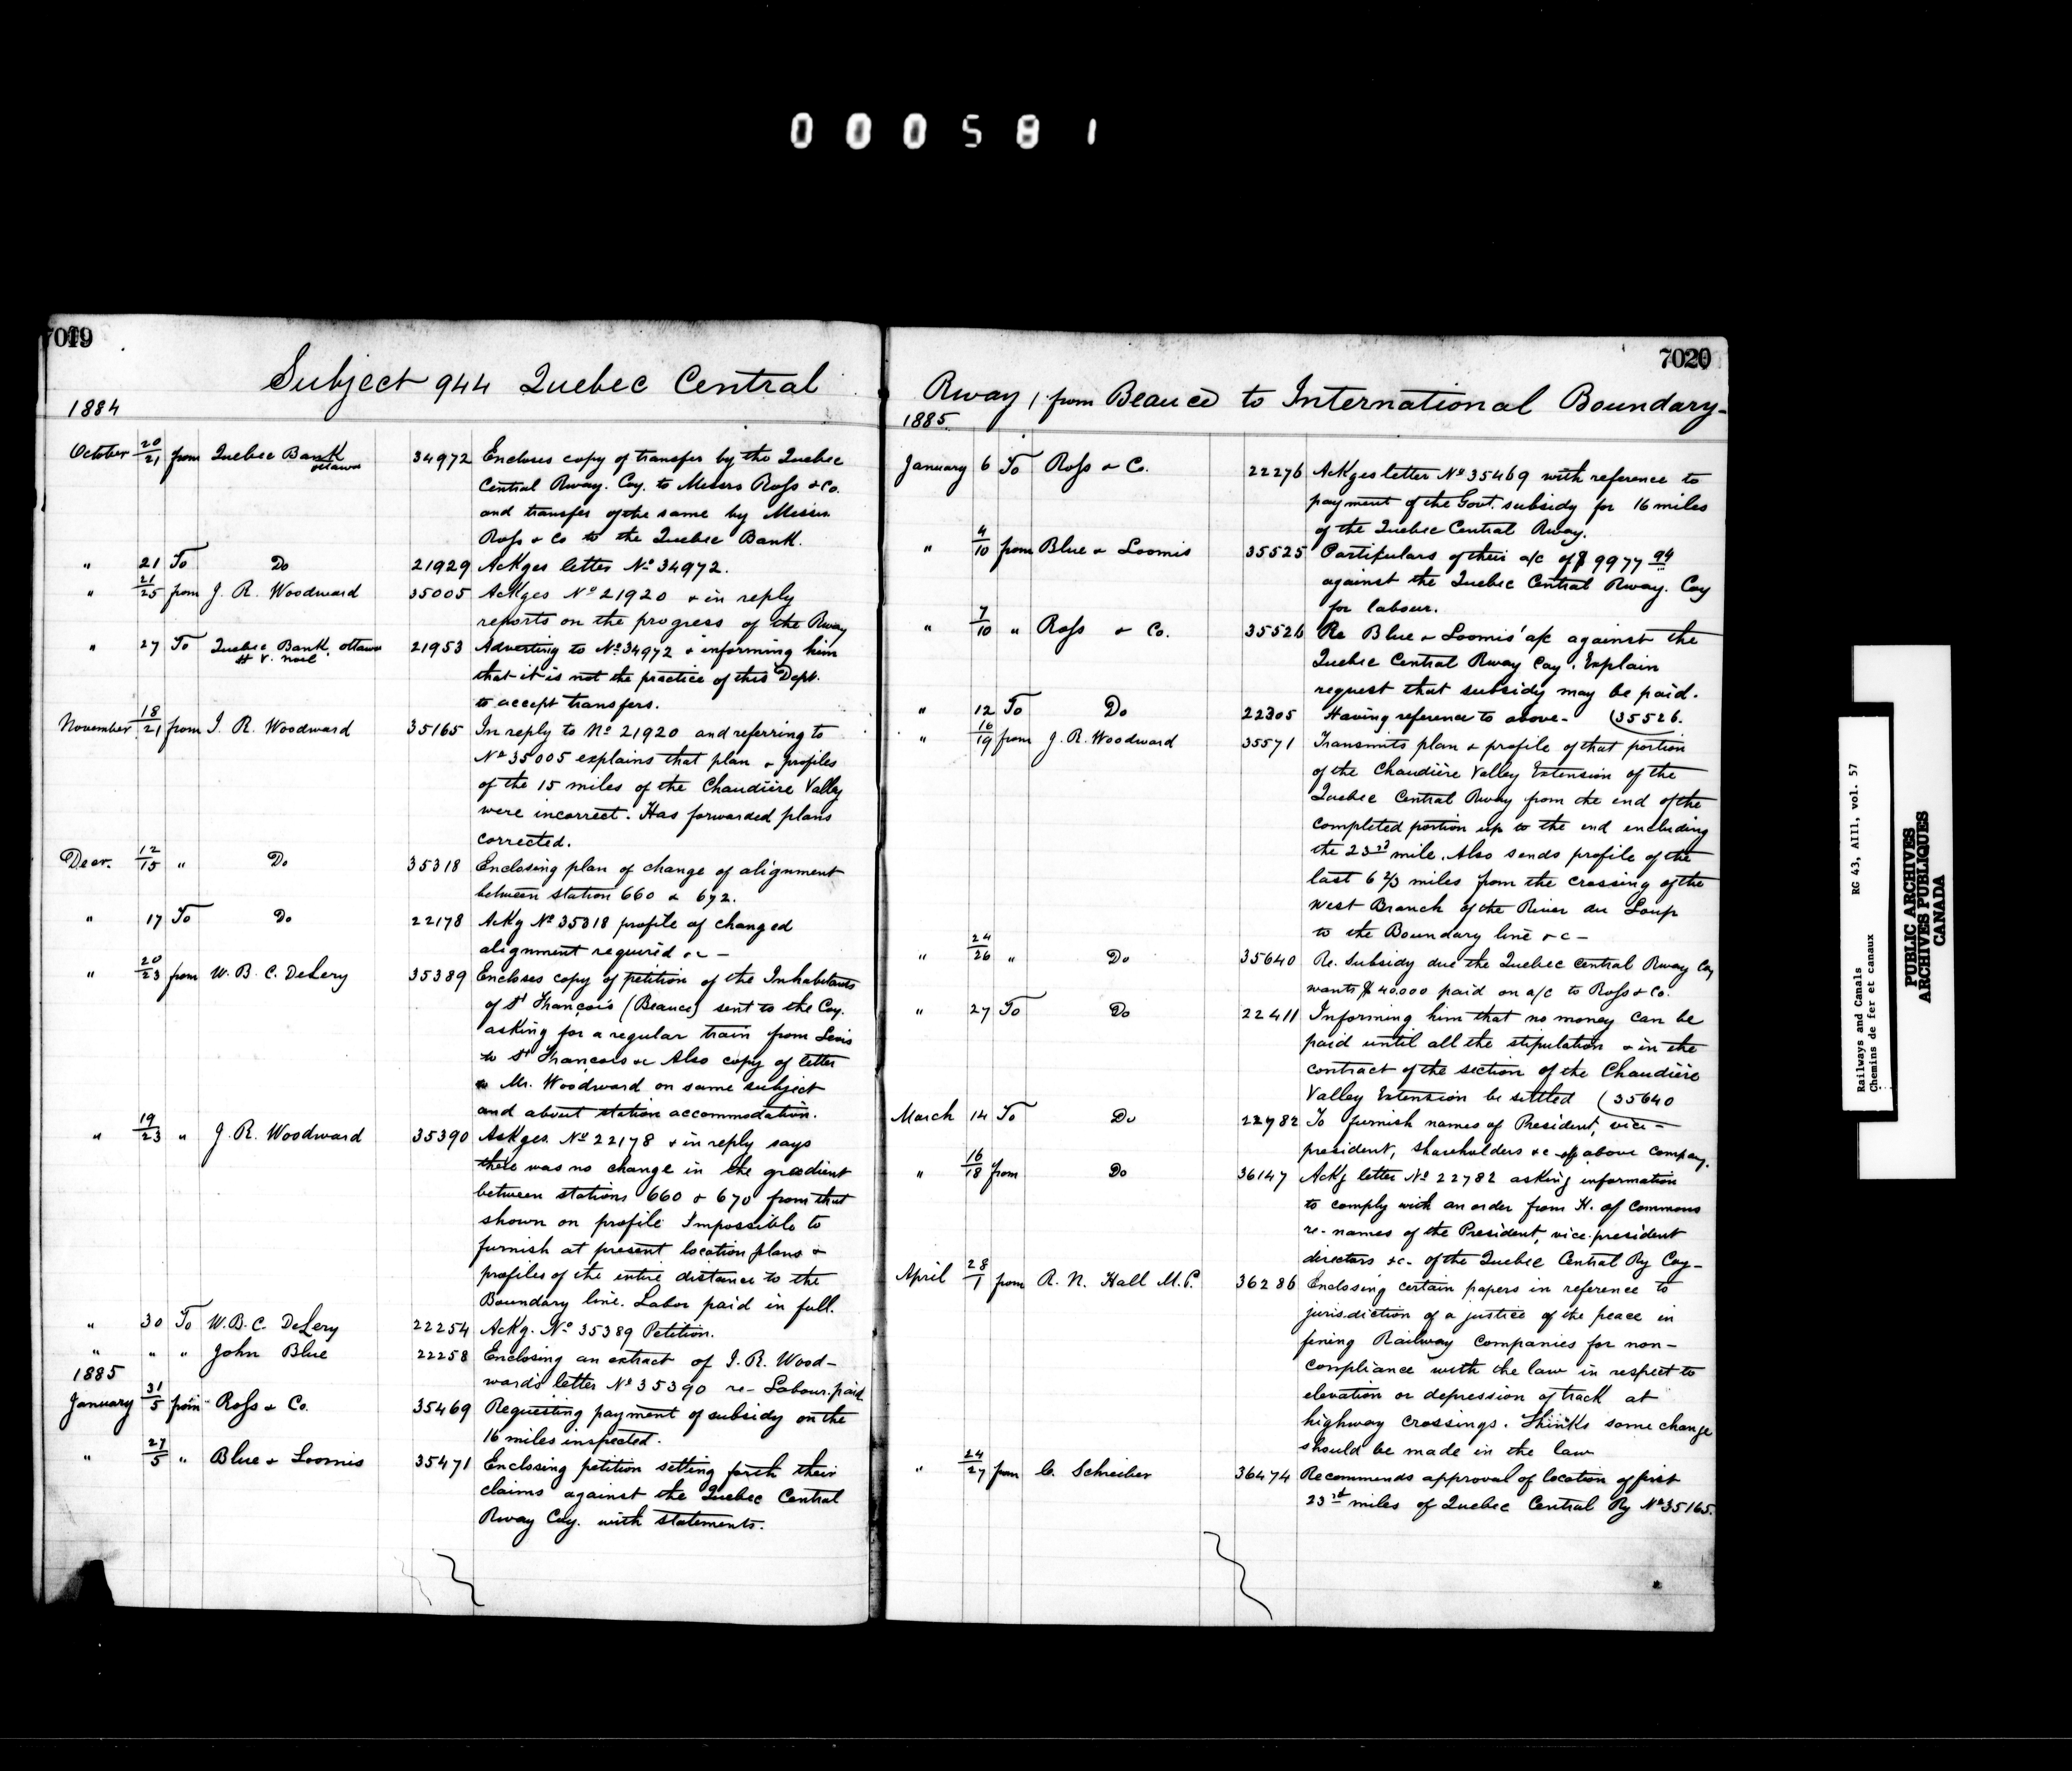 000581
7019
Subject 944 Quebec Central
1884
October 20/21 from Quebec Bank Ottawa 34972 Encloses copy of transfer by the Quebec
Central Rway. Coy. to Messrs Ross & Co.
and transfer of the same by Messrs
Ross & Co to the Quebec Bank.
" 21 To Do 21929 Ackges letter No 34972.
" 21/25 from J. R. Woodward 35005 Ackges No 21920 & in reply
reports on the progress of the Rway
" 27 To Quebec Bank, Ottawa 21953 Adverting to No 34972 & informing him
H. V. Noel
that it is not the practice of this Dept.
to accept transfers.
November 18/21 from J. R. Woodward 35165 In reply to No 21920 and referring to
No 35005 explains that plan & profiles
of the 15 miles of the Chaudière Valley
were incorrect. Has forwarded plans
corrected.
Decr. 12/15 " Do 35318 Enclosing plan of change of alignment
between station 660 & 672.
" 17 To Do 22178 Ackg No 35318 profile of changed
alignment required &c -
" 20/23 from W. B. C. DeLery 35389 Encloses copy of petition of the Inhabitants
of St François (Beauce) sent to the Coy.
asking for a regular train from Levis
to St François &c Also copy of letter
to Mr. Woodward on same subject
and about station accommodation.
" 19/23 " J. R. Woodward 35390 Ackges. No 22178 & in reply says
there was no change in the gradient
between stations 660 & 670 from that
shown on profile Impossible to
furnish at present location plans &
profiles of the entire distance to the
Boundary line. Labor paid in full.
" 30 To W. B. C. DeLery 22254 Ackg. No 35389 Petition.
" " " John Blue 22258 Enclosing an extract of J. R. Wood-
ward's letter No 35390 re- Labour paid
1885
January 31/5 from Ross & Co. 35469 Requesting payment of subsidy on the
16 miles inspected.
" 27/5 " Blue & Loomis 35471 Enclosing petition setting forth their
claims against the Quebec Central
Rway Coy. with statements.
7020
Rway, from Beauce to International Boundary-
1885.
January 6 To Ross & Co. 22276 Ackges letter No 35469 with reference to
payment of the Govt. subsidy for 16 miles
of the Quebec Central Rway.
" 4/10 from Blue & Loomis 35525 Particulars of their a/c of $ 9977 94
against the Quebec Central Rway. Coy
for labour.
" 7/10 " Ross & Co. 35526 Re Blue & Loomis' a/c against the
Quebec Central Rway Coy. Explain
request that subsidy may be paid.
" 12 To Do 22305 Having reference to above- (35526.
" 16/19 from J. R. Woodward 35571 Transmits plan & profile of that portion
of the Chaudière Valley Extension of the
Quebec Central Rway from the end of the
completed portion up to the end including
the 23rd mile. Also sends profile of the
last 6 2/3 miles from the crossing of the
West Branch of the River du Loup
to the Boundary line &c -
" 24/26 " Do 35640 Re. Subsidy due the Quebec Central Rway Coy
wants $ 40.000 paid on a/c to Ross & Co.
" 27 To Do 22411 Informing him that no money can be
paid until all the stipulation & in the
contract of the section of the Chaudière
Valley Extension be settled (35640
March 14 To Do 22782 To furnish names of President, vice-
president, shareholders &c of above Company.
" 16/18 from Do 36147 Ackg letter No 22782 asking information
to comply with an order from H. of Commons
re- names of the President, vice-president
directors &c- of the Quebec Central Ry Coy-
April 28/1 from R. N. Hall M.P. 36286 Enclosing certain papers in reference to
jurisdiction of a justice of the peace in
fining Railway Companies for non-
compliance with the law in respect to
elevation or depression of track at
highway crossings. Thinks some change
should be made in the law
" 24/27 from C. Schreiber 36474 Recommends approval of location of first
23rd miles of Quebec Central Ry No 35165.
Railways and Canals RG 43, AIII, vol. 57
Chemins de fer et canaux
PUBLIC ARCHIVES
ARCHIVES PUBLIQUES
CANADA